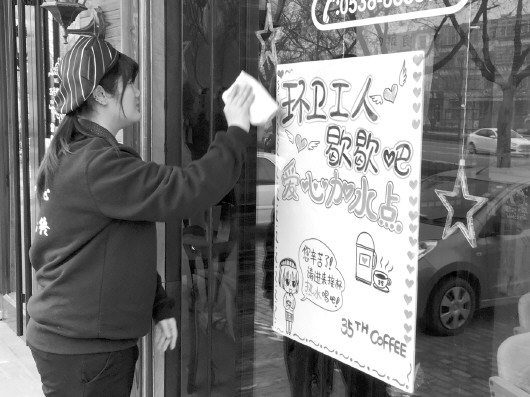 0538-
环卫工人
歇歇吧
爱心加水点
您辛苦了!
请进来接杯
热水喝吧!
35TH COFFEE